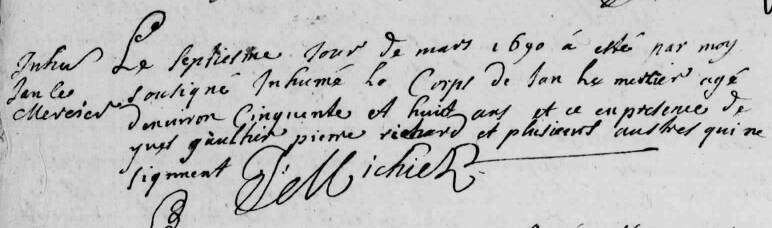 Inhu
Jan le
Mercier
Le septiesme Jour de mars 1690 á esté par moy
sousigné Inhumé le Corps de Jan le mercier agé
denuiron Cinquente et huit ans et ce en presence de
yues gaultier pierre richard et plusieurs austres qui ne
signnent